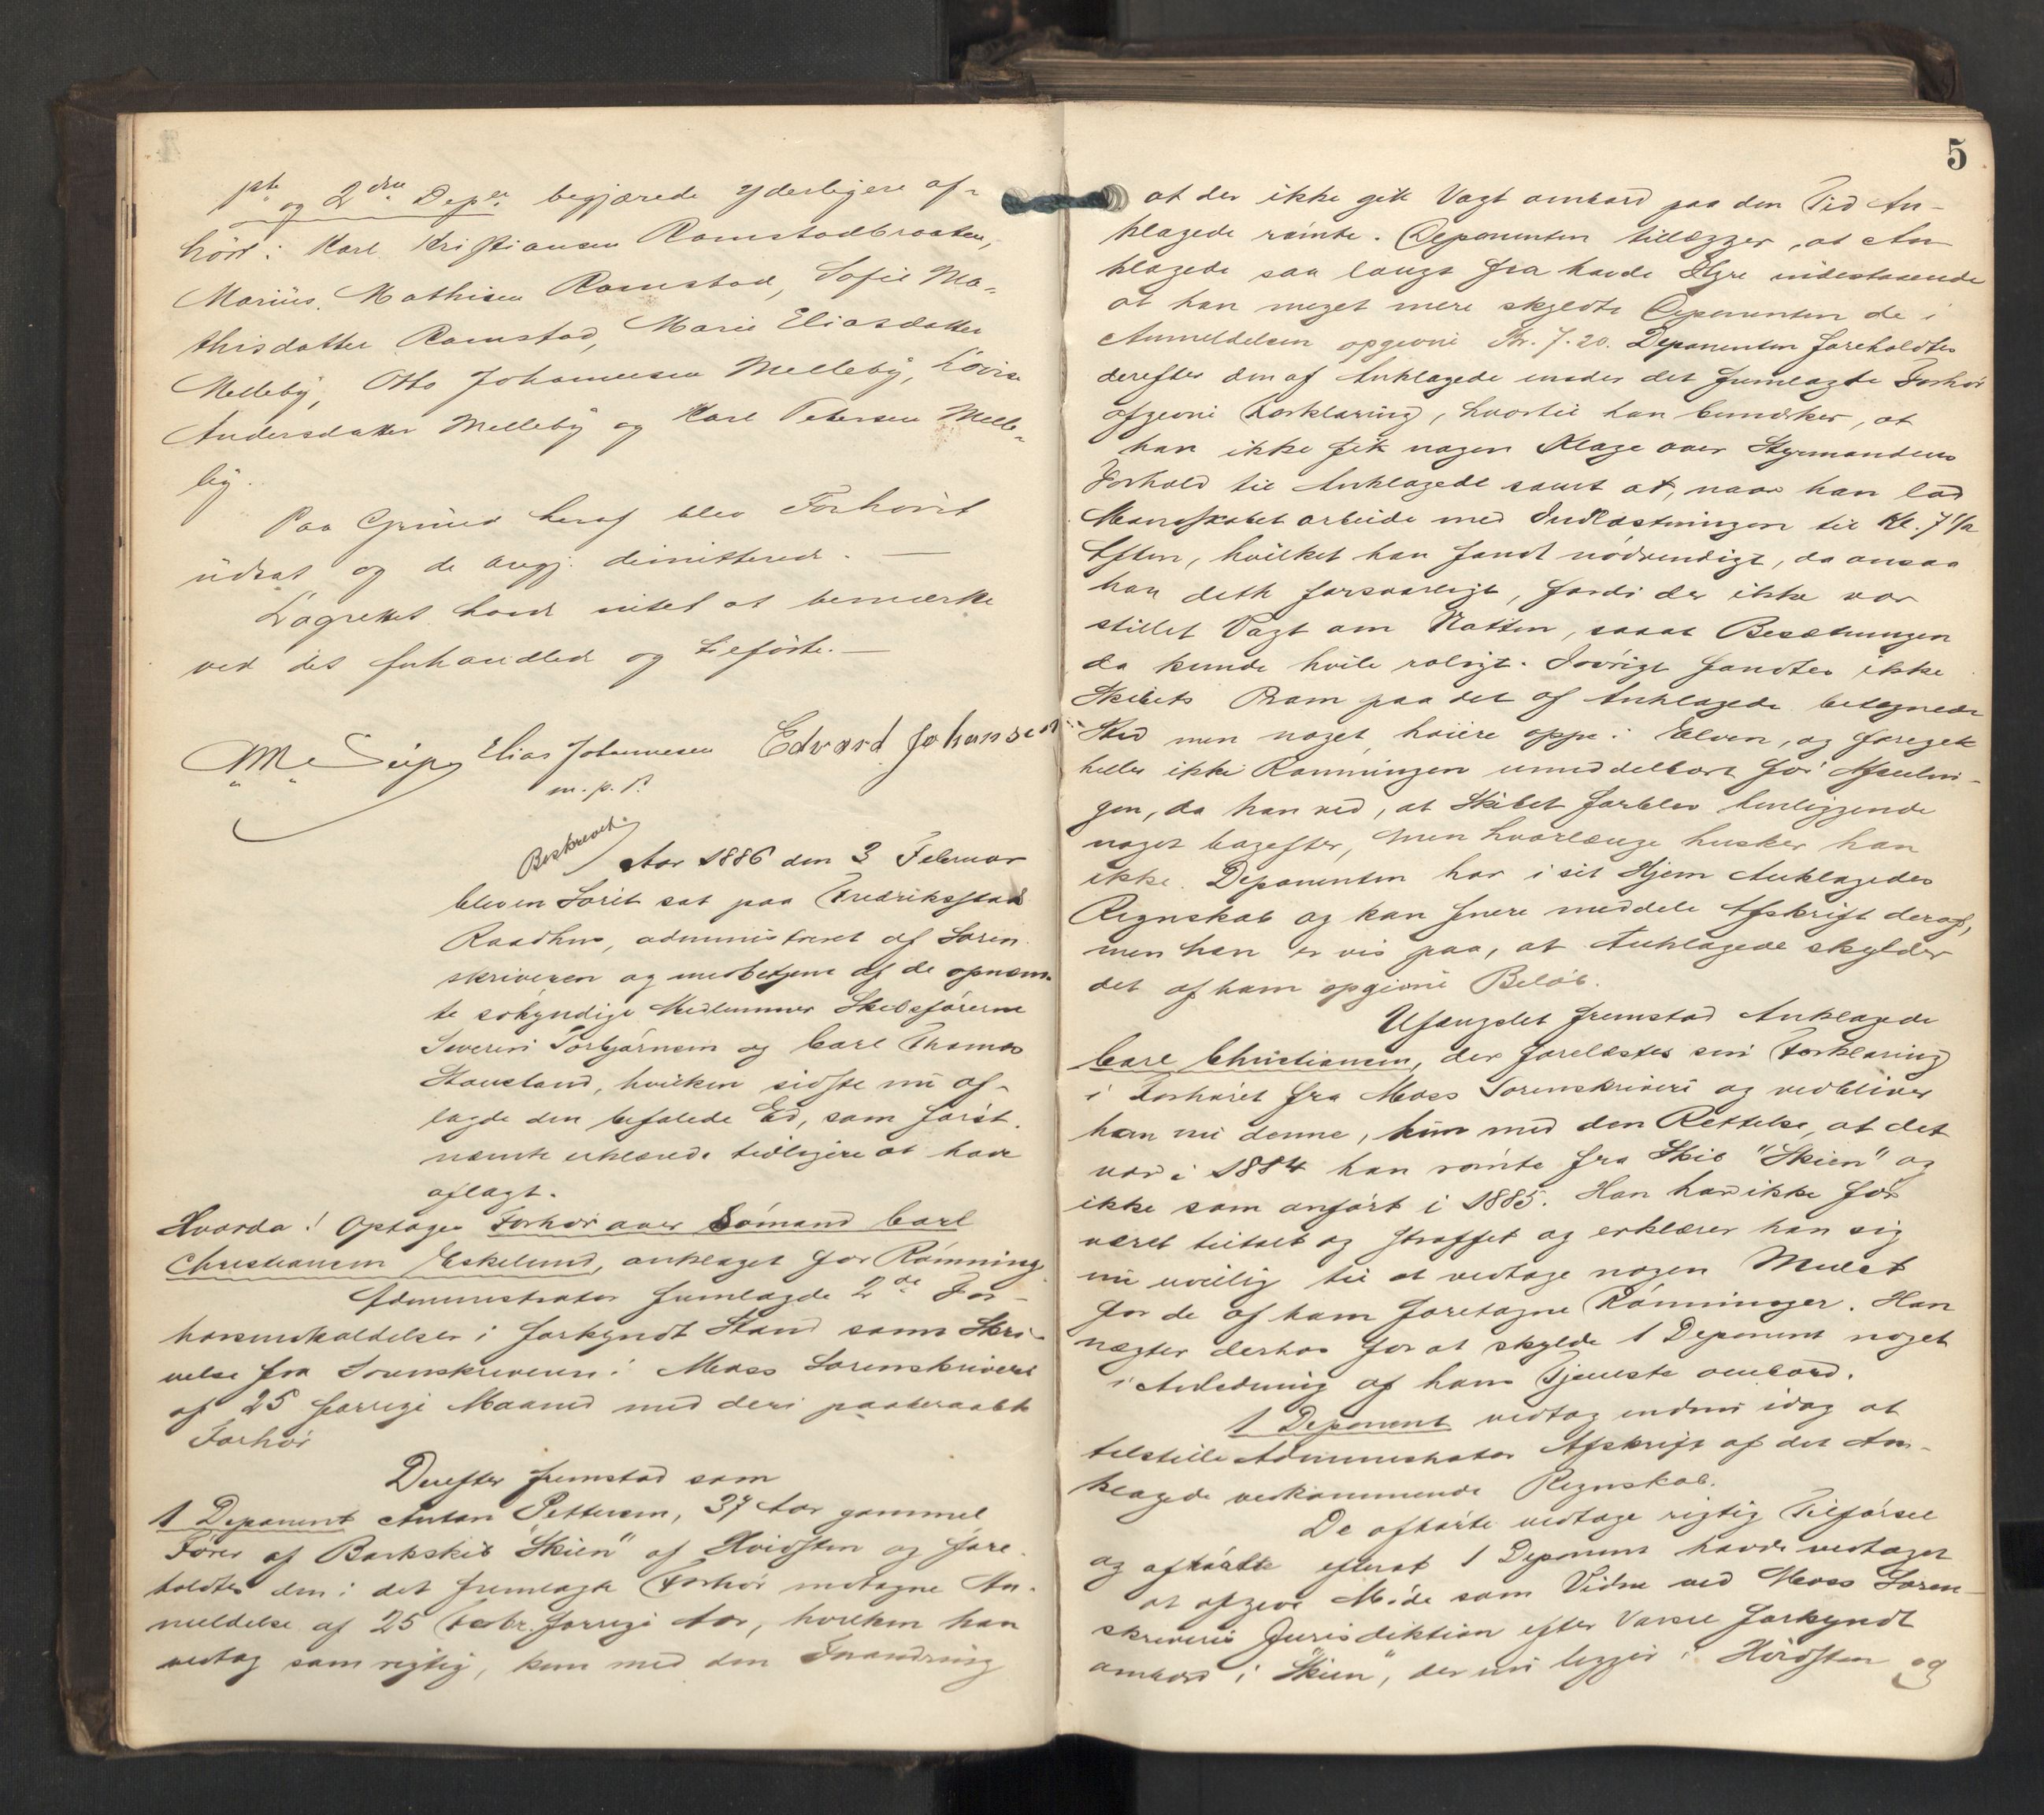 1ste og 2den Depo. begjærede yderligere af-
hørt: Karl Kristiansen Ramstadbraaten,
Marius Mathisen Ramstad, Sofie Ma-
thisdatter Ramstad, Marie Eliasdatter
Melleby, Otto Johannesen Melleby, Lovise
Andersdatter Melleby og Karl Petersen Melle-
by.
Paa Grund heraf blev Forhøret
udsat og de angj. dimitteret. —
Lagrettet havde intet at bemærke
ved det forhandlede og tilførte. —
Elias Johannesen Edvard Johansen
m. p. P.
Beskrevet.
Aar 1886 den 3 Februar
blev en Søret sat paa Fredriksstad
Raadhus, administreret af Soren-
skriveren og medbetjent af de opnævn-
te søkyndige Medlemmer Skibsførerne
Severin Torbjørnsen og Carl Thomas
Stousland, hvilken sidste nu af-
lagde den befalede Ed, som først-
nævnte erklærede tidligere at have
aflagt.
Hvorda! Optages Forhør over Sømand Carl
Christiansen Eskelund, anklaget for Rømning.
Administrator fremlagde 2de For-
hørsindkaldelser i forkyndt Stand samt Skri-
velse fra Sorenskriveren i Moss Sorenskriveri
af 25 forrige Maaned med deri paaberaabt
Forhør
Derefter fremstod som
1 Deponent Anton Pettersen, 37 Aar gammel
Fører af Barkskib "Skien" af Hvidsten og fore-
holdtes den i det fremlagte Forhør indtagne An-
meldelse af 25 forrige Aar, hvilken han
vedtog som rigtig, kun med den Forandring
5
at der ikke gik Vagt ombord paa den Tid An-
klagede rømte. Deponenten tillægger, at An-
klagede saa langt fra havde Hyre indestaaende
at han meget mere skyldte Deponenten de i
Anmeldelsen opgivne Kr. 7.20. Deponenten foreholdtes
derefter den af Anklagede under det fremlagte Forhør
afgivne Forklaring, hvortil han bemærker, at
han ikke fik nogen Klage over Styrmandens
Forhold til Anklagede samt at, naar han lod
Mandskabet arbeide med Indlastningen til Kl. 7 1/2
Aften, hvilket han fandt nødvendigt, da ansaa
han dette forsvarligt, fordi der ikke var
stillet Vagt om Natten, saaat Besætningen
da kunde hvile roligt. Iøvrigt fandtes ikke
Skibets Pram paa det af Anklagede betegnede
Sted men noget høiere oppe i Elven, og foregik
heller ikke Rømningen umiddelbart før Afseilin-
gen, da han ved, at Skibet forblev henliggende
noget bagefter, men hvorlænge husker han
ikke. Deponenten har i sit Hjem Anklagedes
Regnskab og kan senere meddele Afskrift deraf,
men han er vis paa, at Anklagede skylder
det af ham opgivne Beløb.
Ufængslet fremstod Anklagede
Carl Christiansen, der forelæstes sin Forklaring
i Forhøret fra Moss Sorenskriveri og vedbliver
han nu denne, kun med den Rettelse, at det
var i 1884 han rømte fra Skib "Skien" og
ikke som anført i 1885. Han har ikke før
været tiltalt og straffet og erklærer han sig
nu uvillig til at vedtage nogen Mulct
for de af ham foretagne Rømninger. Han
nægter derhos for at skylde 1 Deponent noget
i Anledning af hans Tjeneste ombord.
1 Deponent vedtog endnu idag at
tilstille Administrator Afskrift af det An-
klagede vedkommende Regnskab.
De afhørte vedtoge rigtig Tilførsel
og aftraadte efterat 1 Deponent havde vedtaget
at afgive Møde som Vidne ved Moss Soren-
skriveris Jurisdiktion efter Varsel forkyndt
ombord i "Skien", der nu ligger i Hvidsten og